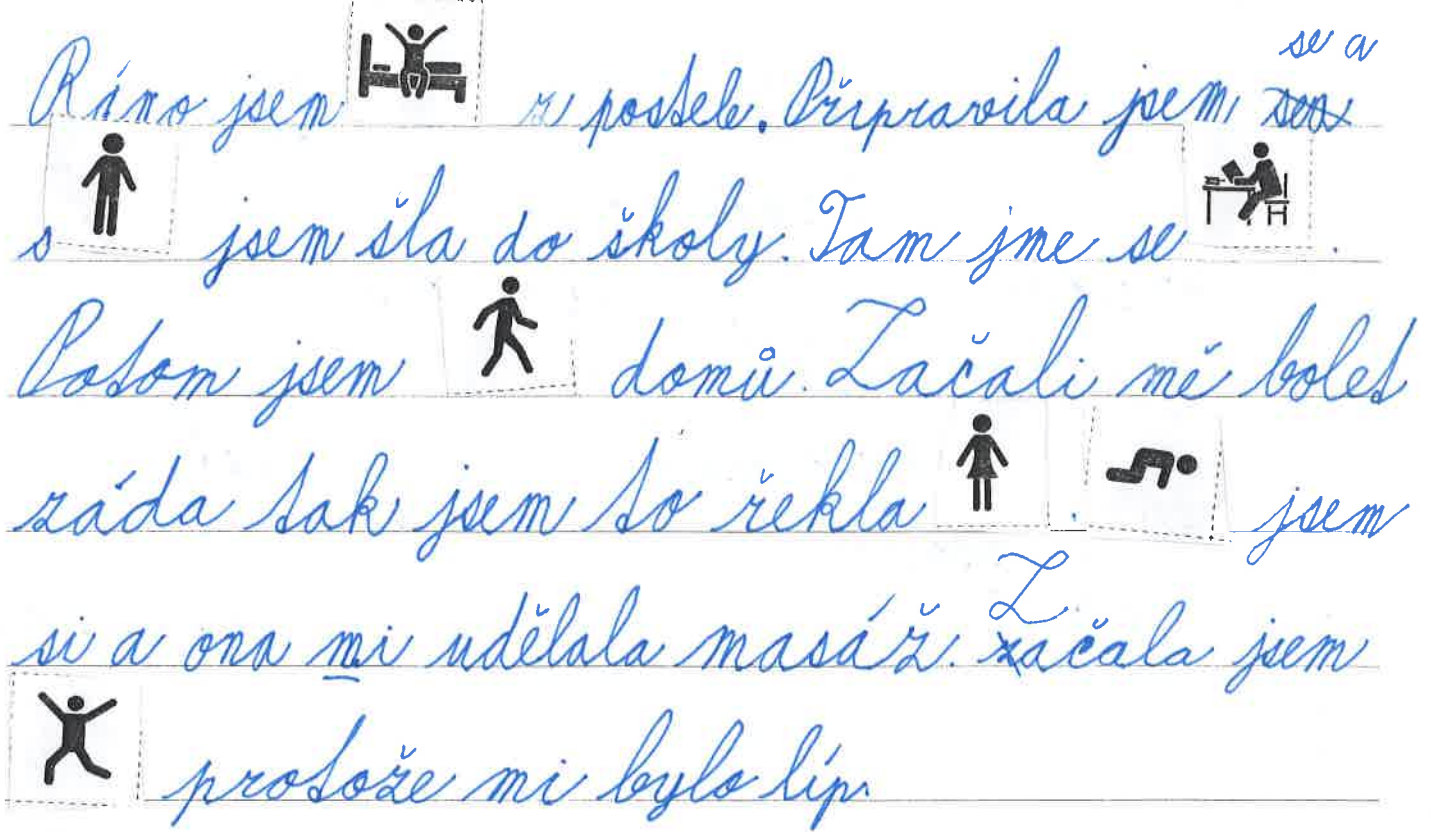 Ráno jsem z postele. Připravila jsem se a
s jsem šla do školy. Tam jme se .
Potom jsem domů. Začali mě bolet
záda tak jsem to řekla . jsem
si a ona mi udělala masáž. Začala jsem
protože mi bylo líp.